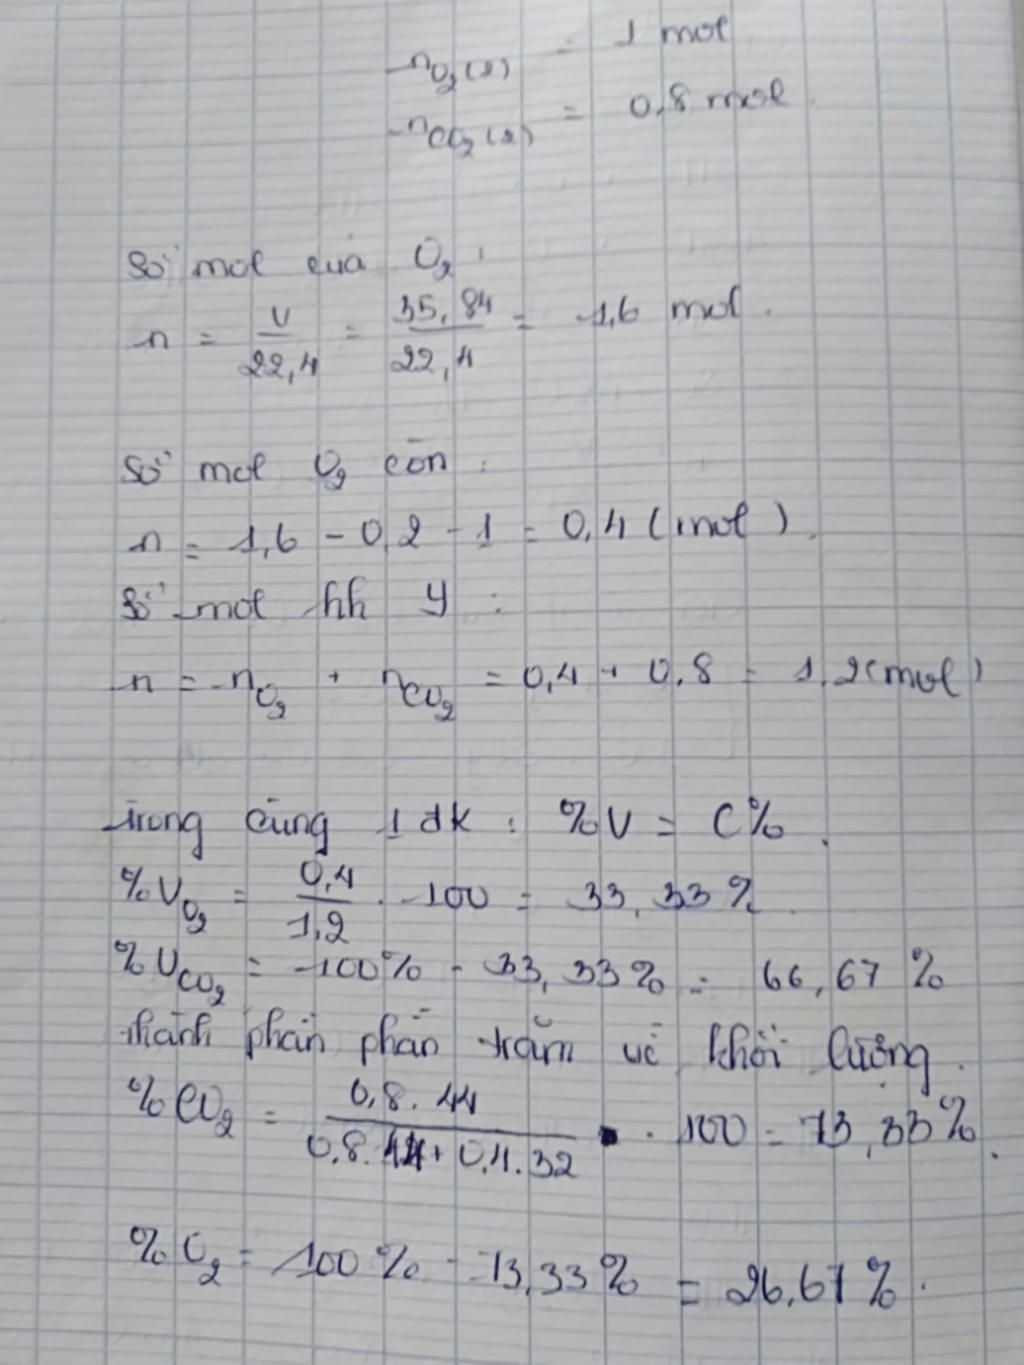 nO₂(2) = 1 mol
nCO₂(2) = 0,8 mol
Số mol của O₂ :
n = V/22,4 = 35,84/22,4 = 1,6 mol.
Số mol O₂ còn :
n = 1,6 - 0,2 - 1 = 0,4 (mol).
Số mol hh Y :
n = nO₂ + nCO₂ = 0,4 + 0,8 = 1,2 (mol)
Trong cùng 1 đk : %V = C%.
%VO₂ = 0,4/1,2 . 100 = 33,33%.
%VCO₂ = 100% - 33,33% = 66,67%
Thành phần phần trăm về khối lượng.
%CO₂ = 0,8.44/0,8.44+0,4.32 . 100 = 73,33%.
%O₂ = 100% - 73,33% = 26,67%.